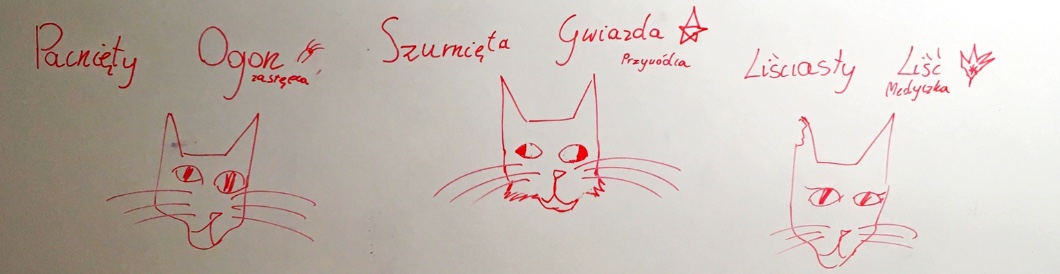 Pacnięty Ogon
zastępca
Szumięta Gwiazda
Przywódca
Liściasty Liść
Medyczka